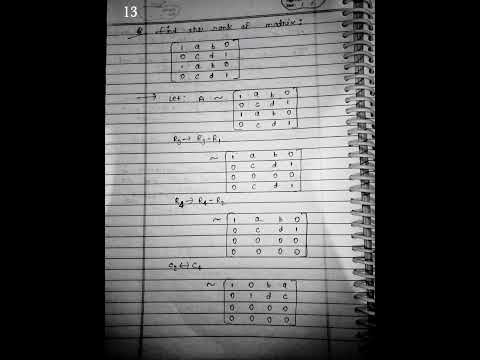 13
Q find the rank of matrix:
1 a b 0
0 c d 1
1 a b 0
0 c d 1
→ Let: A ~ 1 a b 0
0 c d 1
1 a b 0
0 c d 1
R3 → R3 - R1
~ 1 a b 0
0 c d 1
0 0 0 0
0 c d 1
R4 → R4 - R2
~ 1 a b 0
0 c d 1
0 0 0 0
0 0 0 0
C2 ↔ C4
~ 1 0 b a
0 1 d c
0 0 0 0
0 0 0 0